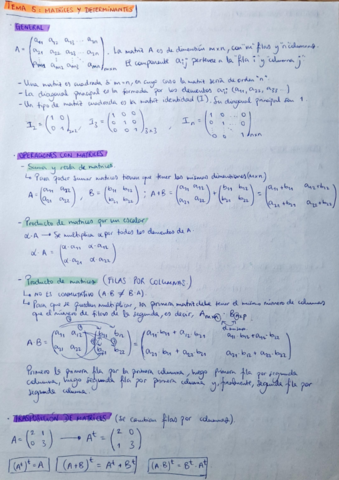 TEMA 5: MATRICES Y DETERMINANTES
- GENERAL
A = (a11 a12 a13 ... a1n
a21 a22 a23 ... a2n
am1 am2 am3 ... amn)mxn
. La matriz A es de dimensión mxn, con "m" filas y "n" columnas.
El componente aij pertenece a la fila "i" y columna "j".
- Una matriz es cuadrada si m=n, en cuyo caso la matriz sería de orden "n".
- La diagonal principal es la formada por los elementos aij (a11, a22, a33...)
- Un tipo de matriz cuadrada es la matriz identidad (I). Su diagonal principal son 1.
I2 = (1 0
0 1)2x2 , I3 = (1 0 0
0 1 0
0 0 1)3x3 , In = (1 0 ... 0
0 1 ... 0
0 0 1)nxn
- OPERACIONES CON MATRICES
- Suma y resta de matrices
↳ Para poder sumar matrices tienen que tener las mismas dimensiones (mxn)
A = (a11 a12
a21 a22) , B = (b11 b12
b21 b22) ; A+B = (a11 a12
a21 a22) + (b11 b12
b21 b22) = (a11+b11 a12+b12
a21+b21 a22+b22)
- Producto de matrices por un escalar
α·A → Se multiplica α por todos los elementos de A
α·A = (α·a11 α·a12
α·a21 α·a22)
- Producto de matrices (FILAS POR COLUMNAS)
↳ no es CONMUTATIVO (A·B ≠ B·A)
↳ Para que se puedan multiplicar, la primera matriz debe tener el mismo número de columnas
que el número de filas de la segunda, es decir, Amxn · Bnxp
A·B = (a11 a12
a21 a22) (b11 b12
b21 b22) = (a11·b11 + a12·b21 a11·b12+a12·b22
a21·b11 + a22·b21 a21·b12 + a22·b22)
Primero la primera fila por la primera columna, luego primera fila por segunda
columna, luego segunda fila por primera columna y, finalmente, segunda fila por
segunda columna.
- TRASPOSICIÓN DE MATRICES (Se cambian filas por columnas)
A = (2 1
0 3) → At = (2 0
1 3)
(At)t = A (A+B)t = At + Bt (A·B)t = Bt · At